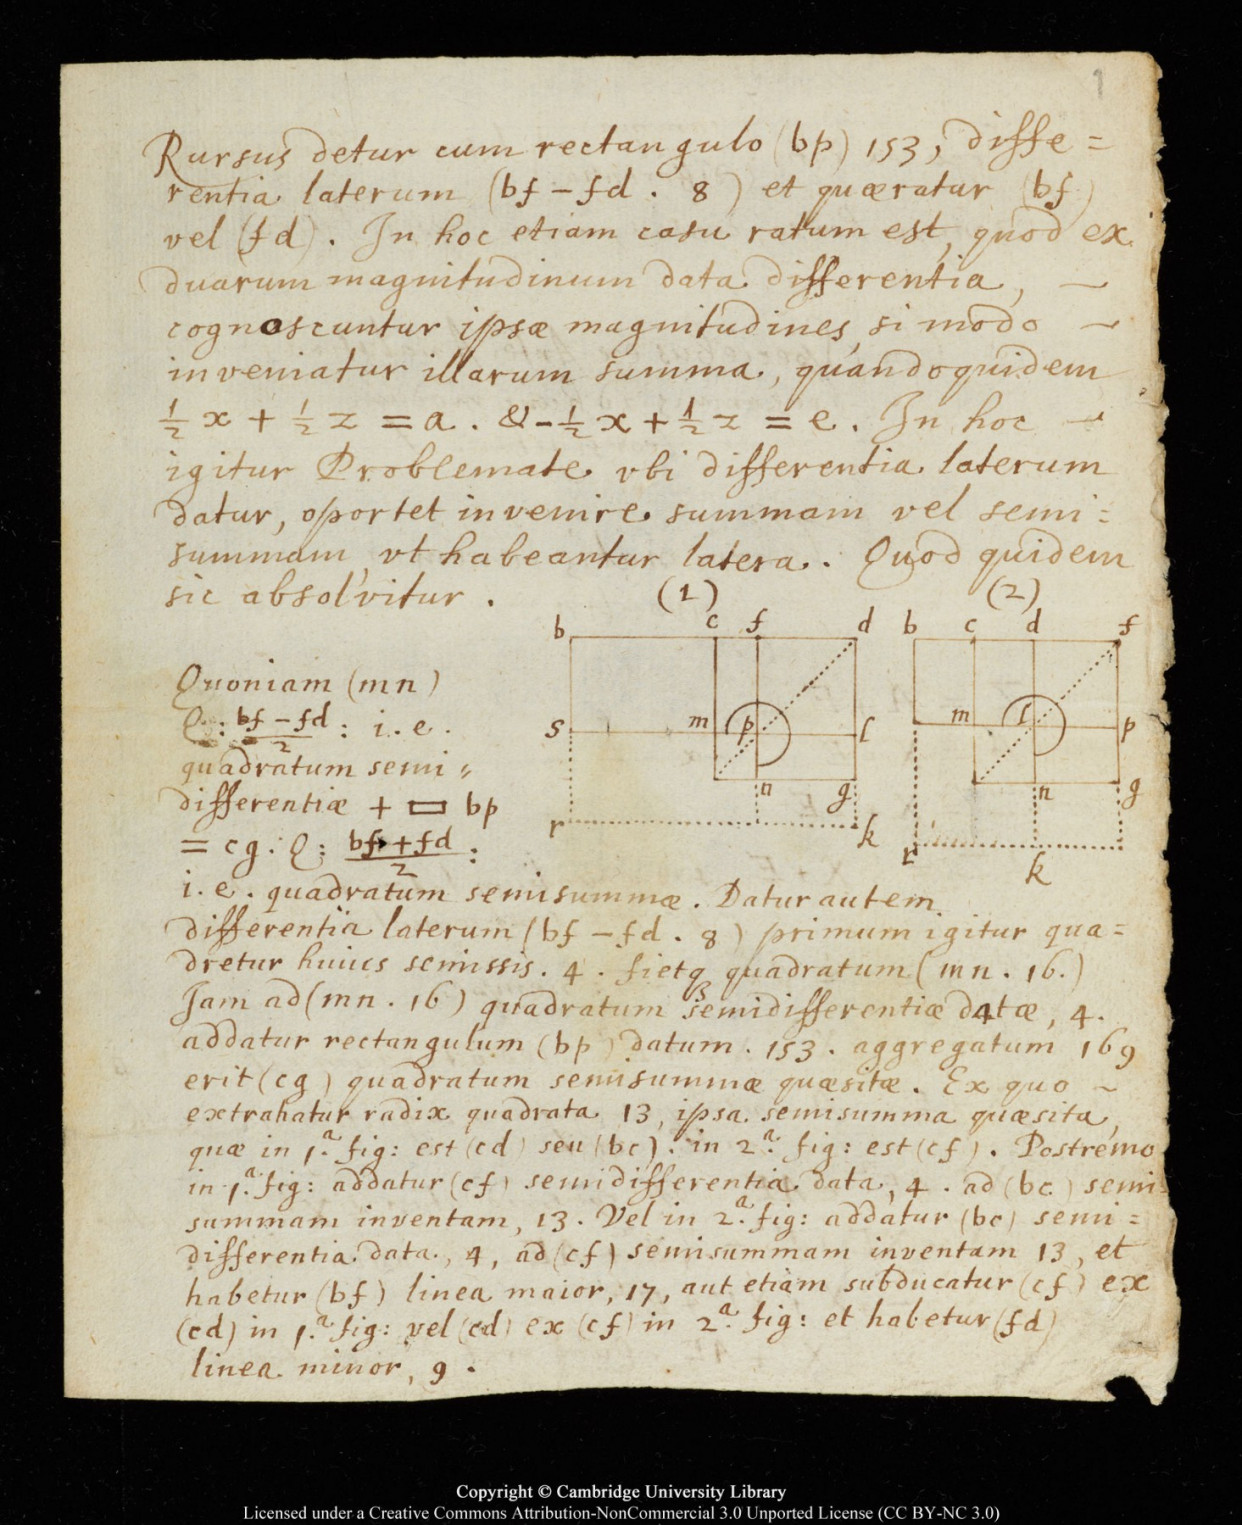 1
Rursus detur cum rectangulo (bp) 153, diffe=
rentia laterum (bf - fd . 8) et quæratur (bf)
vel (fd). In hoc etiam casu ratum est, quod ex
duarum magnitudinum data differentia,
cognoscuntur ipsæ magnitudines, si modo
inveniatur illarum summa, quandoquidem
½ x + ½ z = a . & - ½ x + ½ z = e . In hoc
igitur Problemate vbi differentia laterum
datur, oportet invenire summam vel semi=
summam, vt habeantur latera. Quod quidem
sic absolvitur.
(1) (2)
b c f d b c d f
s m p l m l p
n g n g
r k r k
Quoniam (mn)
Q: bf - fd / 2 : i.e.
quadratum semi=
differentiæ + ▭ bp
= cg . Q: bf + fd / 2 :
i.e. quadratum semisummæ. Datur autem
differentia laterum (bf - fd . 8) primum igitur qua=
dretur huius semissis. 4 . fietq quadratum (mn . 16.)
Jam ad (mn . 16) quadratum semidifferentiæ datæ, 4.
addatur rectangulum (bp) datum . 153 . aggregatum 169
erit (cg) quadratum semisummæ quæsitæ. Ex quo
extrahatur radix quadrata 13, ipsa semisumma quæsita,
quæ in 1.ª fig: est (cd) seu (bc). in 2.ª fig: est (cf). Postremo
in 1.ª fig: addatur (cf) semidifferentia data, 4 . ad (bc) semi=
summam inventam, 13. Vel in 2.ª fig: addatur (bc) semi=
differentia data, 4, ad (cf) semisummam inventam 13, et
habetur (bf) linea maior, 17, aut etiam subducatur (cf) ex
(cd) in 1.ª fig: vel (cd) ex (cf) in 2.ª fig: et habetur (fd)
linea minor, 9.
Copyright © Cambridge University Library
Licensed under a Creative Commons Attribution-NonCommercial 3.0 Unported License (CC BY-NC 3.0)